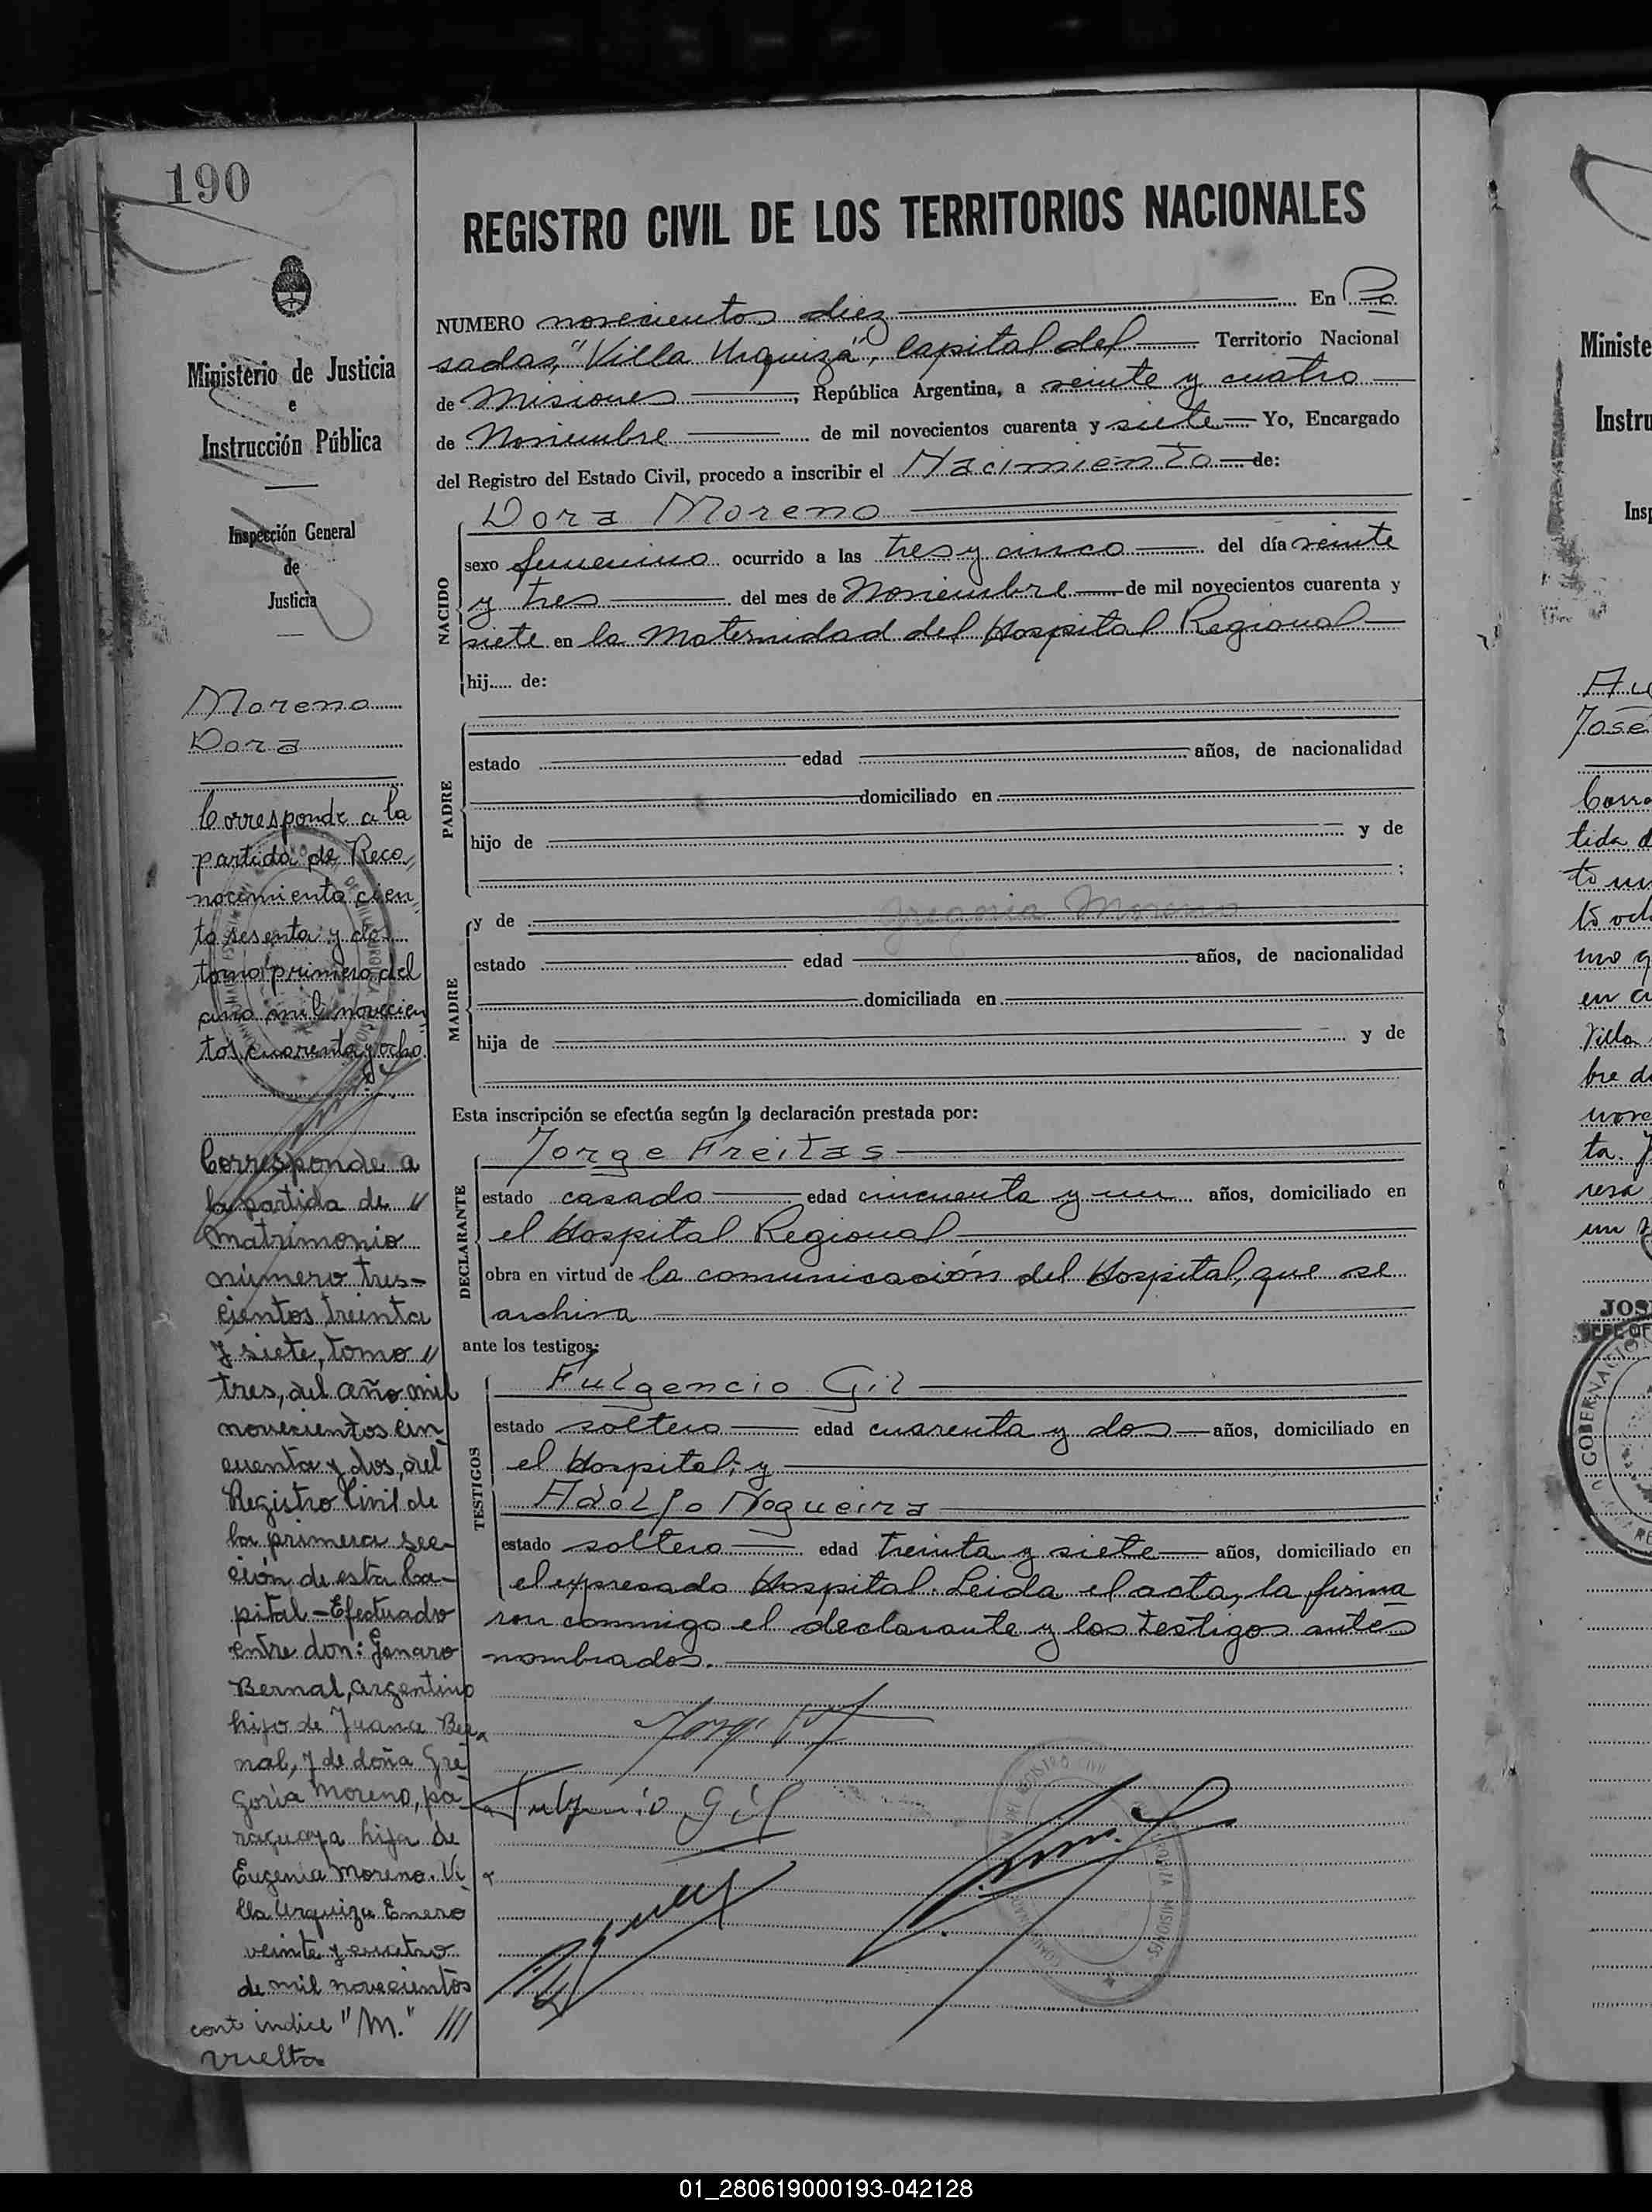 190
Ministerio de Justicia
e
Instrucción Pública
Inspección General
de
Justicia
Moreno
Dora
Corresponde a la
partida de Reco
nocimiento cien
to sesenta y dos
tomo primero del
año mil novecien
tos cuarenta y ocho
Corresponde a
la partida de "
matrimonio
número tres-
cientos treinta
y siete, tomo "
tres, del año mil
novecientos cin
cuenta y dos, del
Registro Civil de
la primera sec-
ción de esta Ca-
pital - Efectuado
entre don: Genaro
Bernal, argentino
hijo de Juana Ber
nal, y de doña Gre
goria Moreno, pa
raguaya hija de
Eugenia Moreno. Vi
lla Urquiza Enero
veinte y cuatro
de mil novecientos
cont indice "M." ///
vuelta
REGISTRO CIVIL DE LOS TERRITORIOS NACIONALES
NUMERO novecientos diez En Po
sadas, "Villa Urquiza", Capital del Territorio Nacional
de Misiones, República Argentina, a veinte y cuatro
de Noviembre de mil novecientos cuarenta y siete Yo, Encargado
del Registro del Estado Civil, procedo a inscribir el Nacimiento de:
NACIDO
Dora Moreno
sexo femenino ocurrido a las tres y cinco del día veinte
y tres del mes de Noviembre de mil novecientos cuarenta y
siete en la Maternidad del Hospital Regional
hij..... de:
PADRE
estado edad años, de nacionalidad
domiciliado en
hijo de y de
;
MADRE
y de Gregoria Moreno
estado edad años, de nacionalidad
domiciliada en
hija de y de
Esta inscripción se efectúa según la declaración prestada por:
DECLARANTE
Jorge Freitas
estado casado edad cincuenta y un años, domiciliado en
el Hospital Regional
obra en virtud de la comunicación del Hospital, que se
archiva
ante los testigos:
TESTIGOS
Fulgencio Gil
estado soltero edad cuarenta y dos años, domiciliado en
el Hospital; y
Adolfo Nogueira
estado soltero edad treinta y siete años, domiciliado en
el expresado Hospital. Leida el acta, la firma
ron conmigo el declarante y los testigos antes
nombrados.
Fulgencio Gil
Ministe
Instru
Insp
José
tida d
to un
en
Villa
bre d
ta.
un
JOS
GOBERNACION
01_280619000193-042128